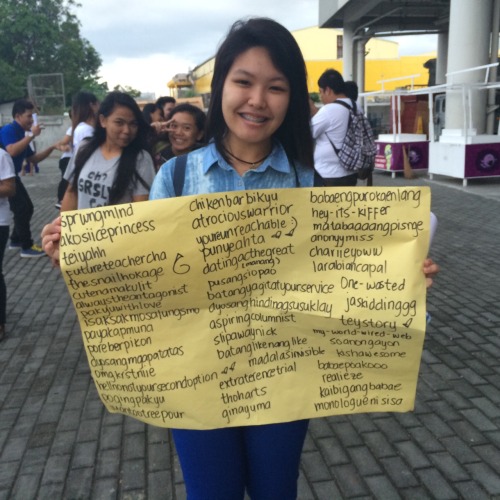 sprungm1nd
akosiiceprincess
teiyahh
futureteachercha
thesnailhokage
cutenamakulit
awaystheantagonist
pakyuwithlove
isaksakmosajungsmo
papkapmuna
poreberpikon
dyosangmapatatas
omgkrstniie
hellimnotyoursecondoption
poginGpakyu
chikenbarbikyu
atrociouswarrior
youreunreachable :)
punyeahita
datingactthegreat
(manang)
pusangsiopao
batangyagitatyourservice
dyosanghindinagsusuklay
aspiringcolumnist
slipawaynick
batanglikenanglike
madalasinvisible
extrarencetrial
thoharts
ginayuma
babaengpurokaenlang
hey-its-kiffer
matabaaangpisnge
anonymiss
charijeyoww
larabiahcapal
One-wasted
jasaddinggg
teystory
my-world-wired-web
soanongayon
kashawesome
babaepoakooo
realieze
kaibigangbabae
monologuenisisa